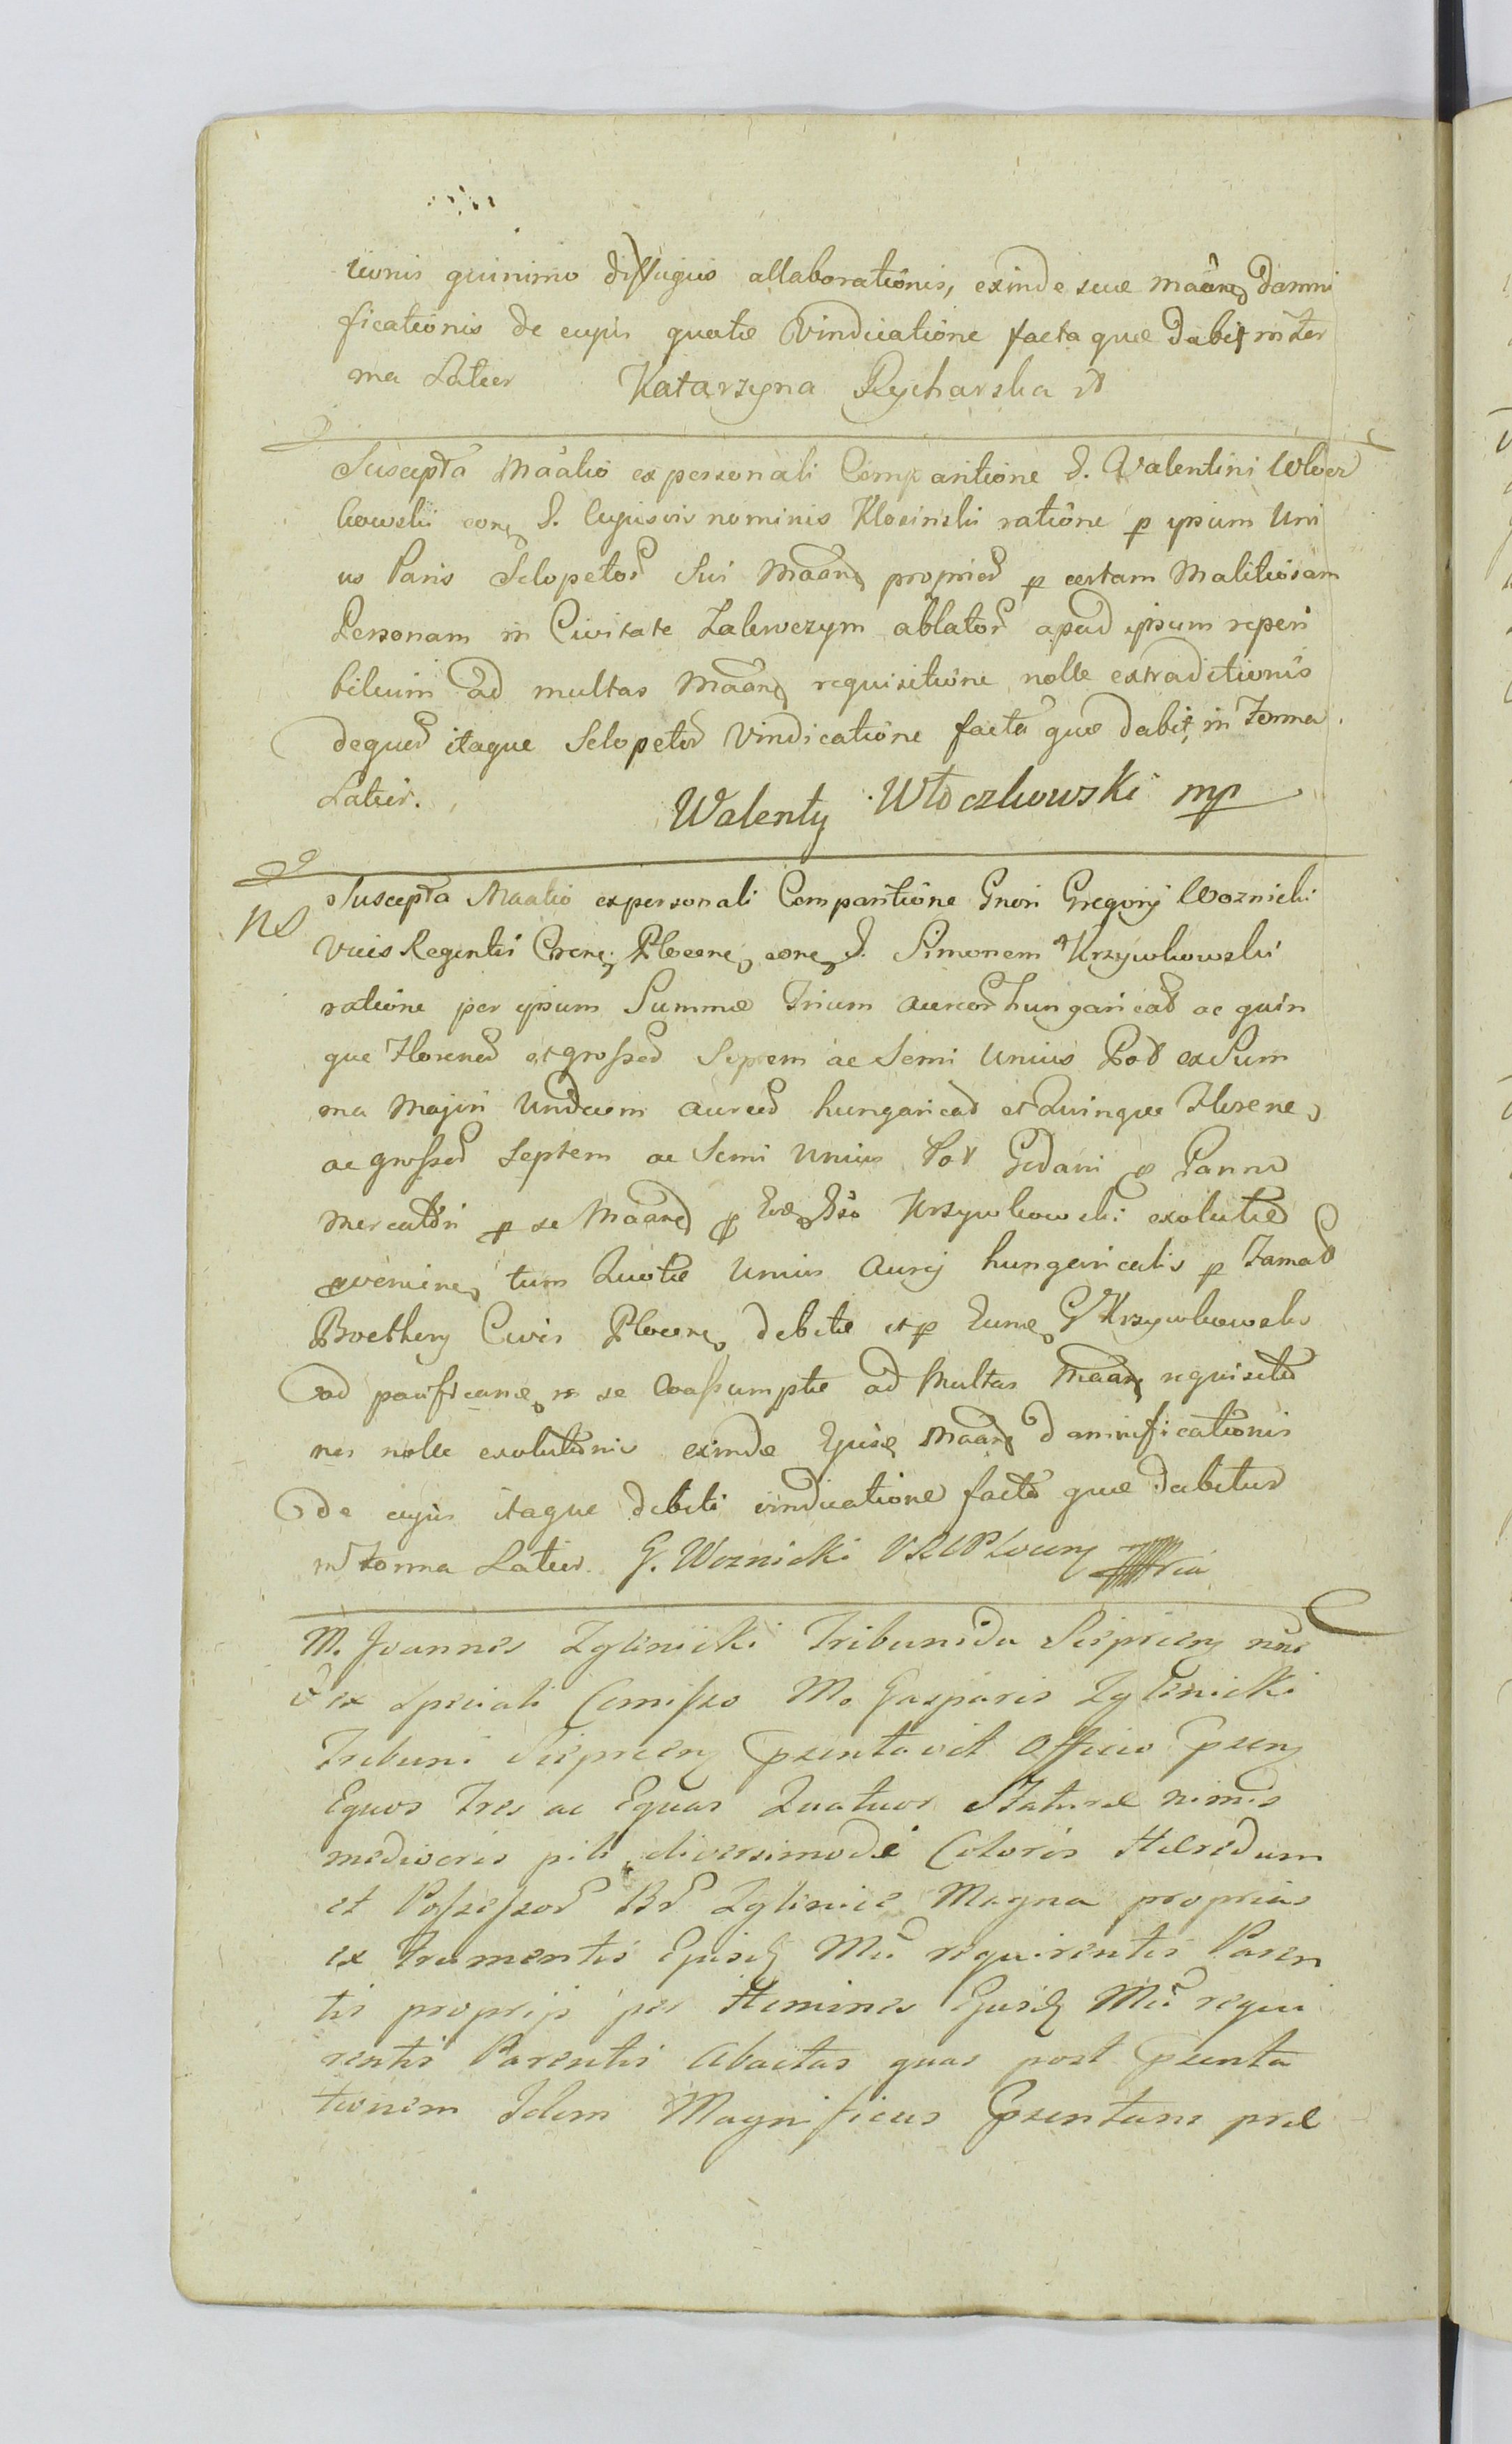 tionis quinimo diffugius allaborationis, exinde suæ Maãne Damni
ficationis de cujus quotæ Vindicatione facta quæ dabit in For
ma Latior Katarzyna Rycharska
Suscepta Maãtio ex personali Comparitione G. Valentini Wlocz
kowski cone G. Cujusvis nominis Klosinski ratione p ipsum Uni
us Paris Sclopetor Sui Maane propried p certam Malitiosam
Personam in Civitate Zakroczym ablator apud ipsum reperi
bilium ad multas Maane requisitione nolle extraditionis
dequed itaque Sclopetor Vindicatione facta quæ dabit in Forma
Latiori.
Walenty Włoczkowski mp
NS
Suscepta Maatio ex personali Comparitione Gnosi Gregorij Woznicki
Vices Regentis Crene Plocene cone G. Simonem Krzywkowski
ratione per ipsum Summæ Trium aureor hungaricad ac quin
que Florened et grossed Septem ac Semi Unius Pod ex Sum
ma Majori Undecim aureed hungaricad et Quinque Florene
ac grossed Septem ac Semi Unius Pod Gedani p Panni
Mercatori p se Maane p Krzywkowski exolutæ
provenine tum Quotæ Unius Aurej hungaricalis p Famad
Boethery Civis Plocene debitæ et p Eune G Krzywkowski
ad pacificane in se Coassumptæ ad Multas Maane requisitio
nes nolle exolutionis exinde Ejusde Maane damnificationis
De cujus itaque debiti vindicatione facta quæ dabitur
in Forma Latior. G. Woznicki VRCPlocens
M. Joannes Zglinicki Tribunida Sieprcens
ex Speciali Comisso M. Gasparis Zglinicki
Tribuni Sieprcens Psentavit Officio Psens
Equos Tres ac Equas Quatuor Staturæ nimis
mediocris pili diversimodi Coloris Hæredum
et Possessor Br Zglinice Magna proprias
ex Frumentis Ejusd Mci requirentis Paren
tis proprijs per Homines Ejusd Mci requi
rentis Parentis Abactas quas post Psenta
tionem Idem Magnificus Psentans præ